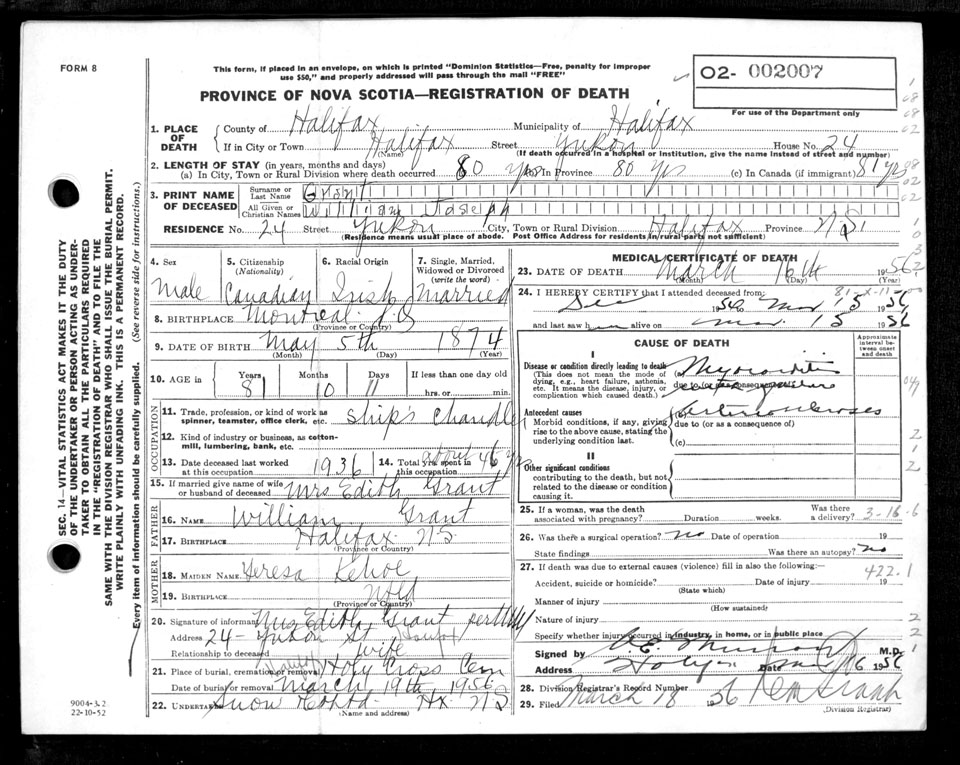 FORM 8
This form, if placed in an envelope, on which is printed "Dominion Statistics—Free, penalty for improper
use $50," and properly addressed will pass through the mail "FREE"
O2- 002007
PROVINCE OF NOVA SCOTIA—REGISTRATION OF DEATH
For use of the Department only
1. PLACE OF DEATH
County of Halifax Municipality of Halifax
If in City or Town Halifax Street Yukon House No. 24
(Name) (If death occurred in a hospital or institution, give the name instead of street and number)
2. LENGTH OF STAY (in years, months and days)
(a) In City, Town or Rural Division where death occurred 80 yrs In Province 80 yrs (c) In Canada (if immigrant) 81 yrs
3. PRINT NAME OF DECEASED
Surname or Last Name Grant
All Given or Christian Names William Joseph
RESIDENCE No. 24 Street Yukon City, Town or Rural Division Halifax Province N.S.
(Residence means usual place of abode. Post Office Address for residents in rural parts not sufficient)
4. Sex Male
5. Citizenship (Nationality) Canadian
6. Racial Origin Irish
7. Single, Married, Widowed or Divorced (write the word) Married
8. BIRTHPLACE Montreal P.Q
(Province or Country)
9. DATE OF BIRTH May 5th 1874
(Month) (Day) (Year)
10. AGE in Years 81 Months 10 Days 11 If less than one day old
hrs. or min.
OCCUPATION
11. Trade, profession, or kind of work as spinner, teamster, office clerk, etc. Ship's Chandler
12. Kind of industry or business, as cotton-mill, lumbering, bank, etc.
13. Date deceased last worked at this occupation 1936
14. Total yrs. spent in this occupation about 46 yrs
15. If married give name of wife or husband of deceased Mrs Edith Grant
FATHER
16. NAME William Grant
17. BIRTHPLACE Halifax N.S
(Province or Country)
MOTHER
18. MAIDEN NAME Teresa Kehoe
19. BIRTHPLACE Nfld
(Province or Country)
20. Signature of informant Mrs Edith Grant
Address 24 - Yukon St
Relationship to deceased wife
21. Place of burial, cremation or removal Holy Cross Cem
Date of burial or removal March 19th 1956
22. UNDERTAKER Snow Hx. N.S
(Name and address)
9004-3.2
22-10-52
MEDICAL CERTIFICATE OF DEATH
23. DATE OF DEATH March 16th 1956
(Month) (Day) (Year)
24. I HEREBY CERTIFY that I attended deceased from
Dec 1954 to Mar 15 1956
and last saw him alive on Mar. 15 1956
CAUSE OF DEATH
Approximate interval between onset and death
I
Disease or condition directly leading to death
(This does not mean the mode of dying, e.g., heart failure, asthenia, etc. It means the disease, injury, or complication which caused death.)
Myocarditis
due to (or as a consequence of)
Antecedent causes
Morbid conditions, if any, giving rise to the above cause, stating the underlying condition last.
due to (or as a consequence of)
(c)
II
Other significant conditions
contributing to the death, but not related to the disease or condition causing it.
25. If a woman, was the death associated with pregnancy? Duration weeks. Was there a delivery? 3-16-6
26. Was there a surgical operation? No Date of operation 19
State findings Was there an autopsy? No
27. If death was due to external causes (violence) fill in also the following:— 422.1
Accident, suicide or homicide? Date of injury 19
(State which)
Manner of injury
(How sustained)
Nature of injury
Specify whether injury occurred in industry, in home, or in public place
Signed by M.D.
Address Date Mar 16 1956
28. Division Registrar's Record Number
29. Filed March 18 1956
(Division Registrar)
SEC. 14—VITAL STATISTICS ACT MAKES IT THE DUTY
OF THE UNDERTAKER OR PERSON ACTING AS UNDER-
TAKER TO OBTAIN ALL THE PARTICULARS REQUIRED
IN THE "REGISTRATION OF DEATH" AND TO FILE THE
SAME WITH THE DIVISION REGISTRAR WHO SHALL ISSUE THE BURIAL PERMIT.
WRITE PLAINLY WITH UNFADING INK. THIS IS A PERMANENT RECORD.
Every item of information should be carefully supplied. (See reverse side for instructions.)